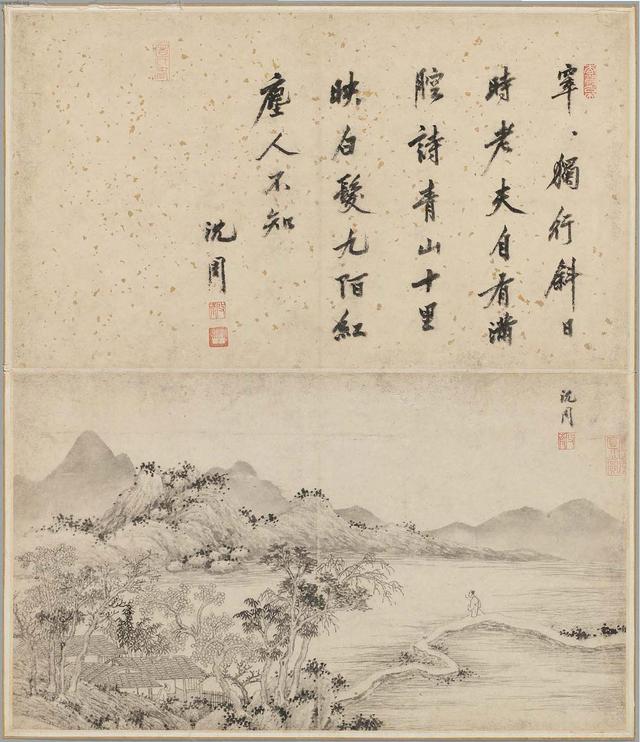 窣〻獨行斜日
時老夫自有滿
腔詩青山十里
映白髮九陌紅
塵人不知
沈周
沈周